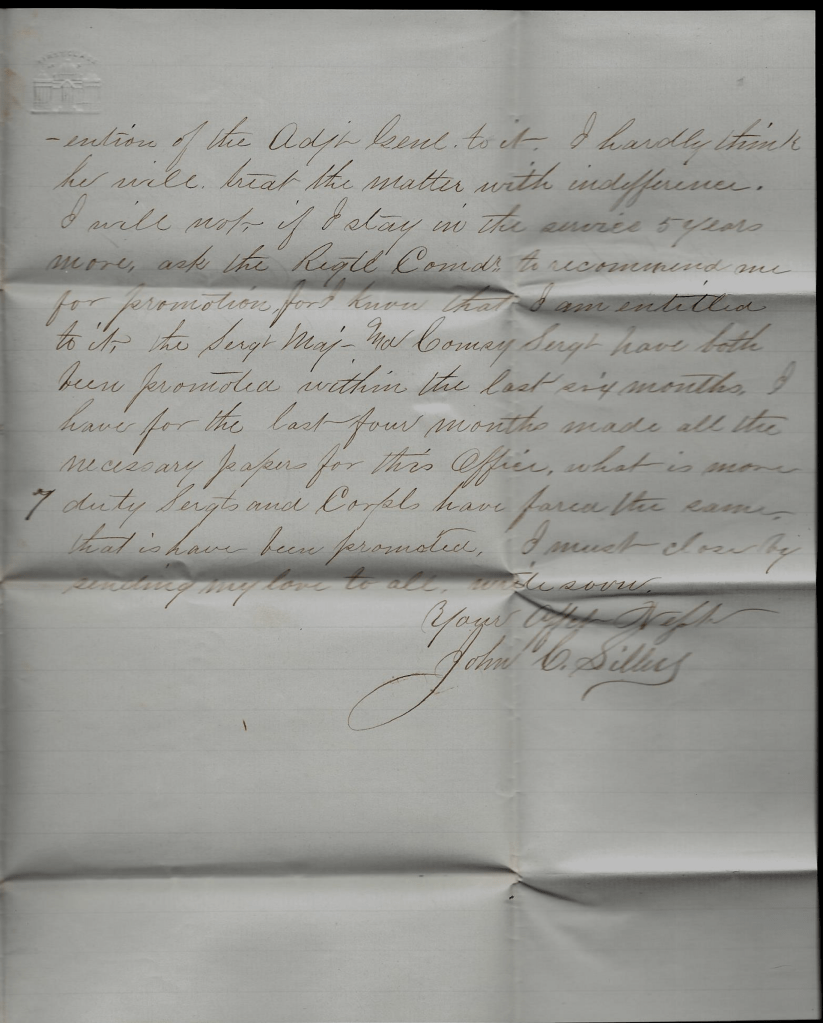 -ention of the Adjt Genl. to it. I hardly think
he will treat the matter with indifference.
I will not if I stay in the service 5 years
more, ask the Regtl Comdr to recommend me
for promotion, for I know that I am entitled
to it, the Sergt Maj- Comsy Sergt have both
been promoted within the last six months. I
have for the last four months made all the
necessary papers for this Office, what is more
7 duty Sergts and Corpls have fared the same,
that is have been promoted. I must close by
sending my love to all. write soon.
Your Afft
John C.